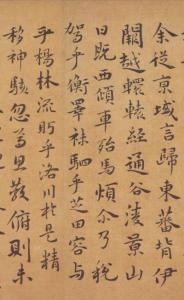 余從京域言歸東蕃背伊
闕越轘轅經通谷凌景山
日既西傾車殆馬煩尔乃稅
駕乎衡皋秣駟乎芝田容与
乎楊林流眄乎洛川於是精
移神駭忽焉思散俯則未